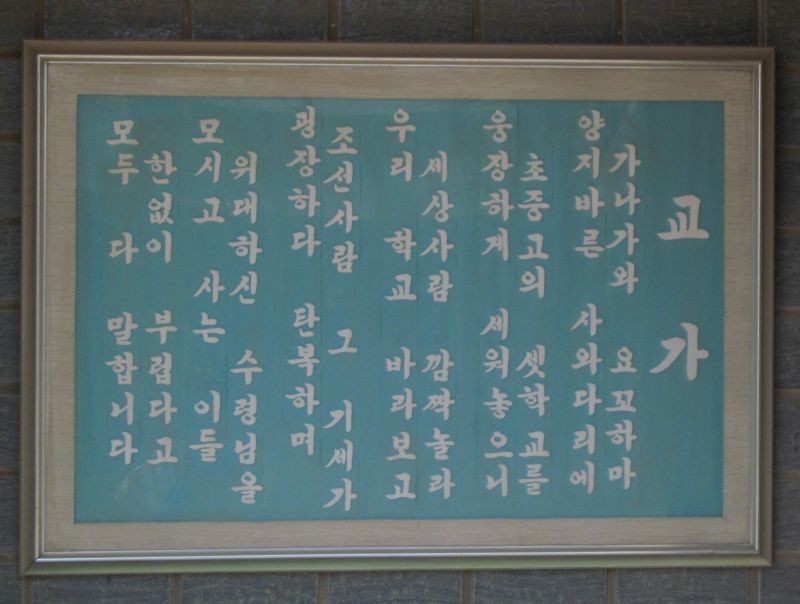 교가
가나가와 요꼬하마
양지바른 사와다리에
초중고의 셋학교를
웅장하게 세워놓으니
세상사람 깜짝놀라
우리 학교 바라보고
조선사람 그 기세가
굉장하다 탄복하며
위대하신 수령님을
모시고 사는 이들
한없이 부럽다고
모두 다 말합니다